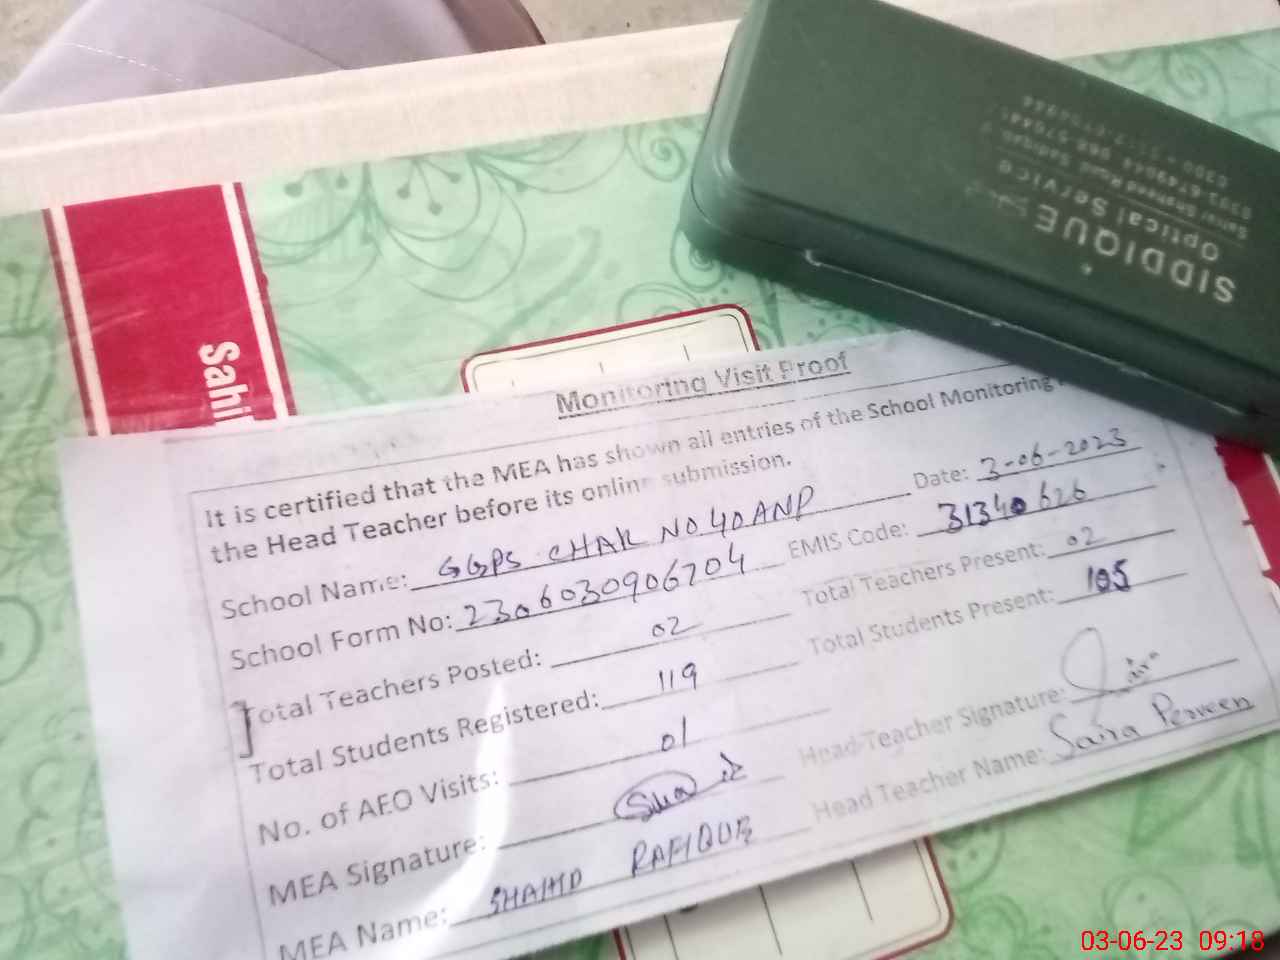 Sahi
SIDDIQUE
Optical Service
Monitoring Visit Proof
It is certified that the MEA has shown all entries of the School Monitoring
the Head Teacher before its online submission.
School Name: GGPS CHAK NO 40 ANP Date: 3-06-2023
School Form No: 2306030906704 EMIS Code: 31340626
Total Teachers Posted: 02 Total Teachers Present: 02
Total Students Registered: 119 Total Students Present: 105
No. of AEO Visits: 01
MEA Signature: Head Teacher Signature: Saira
MEA Name: SHAHID RAFIQUE Head Teacher Name: Saira Perveen
03-06-23 09:18